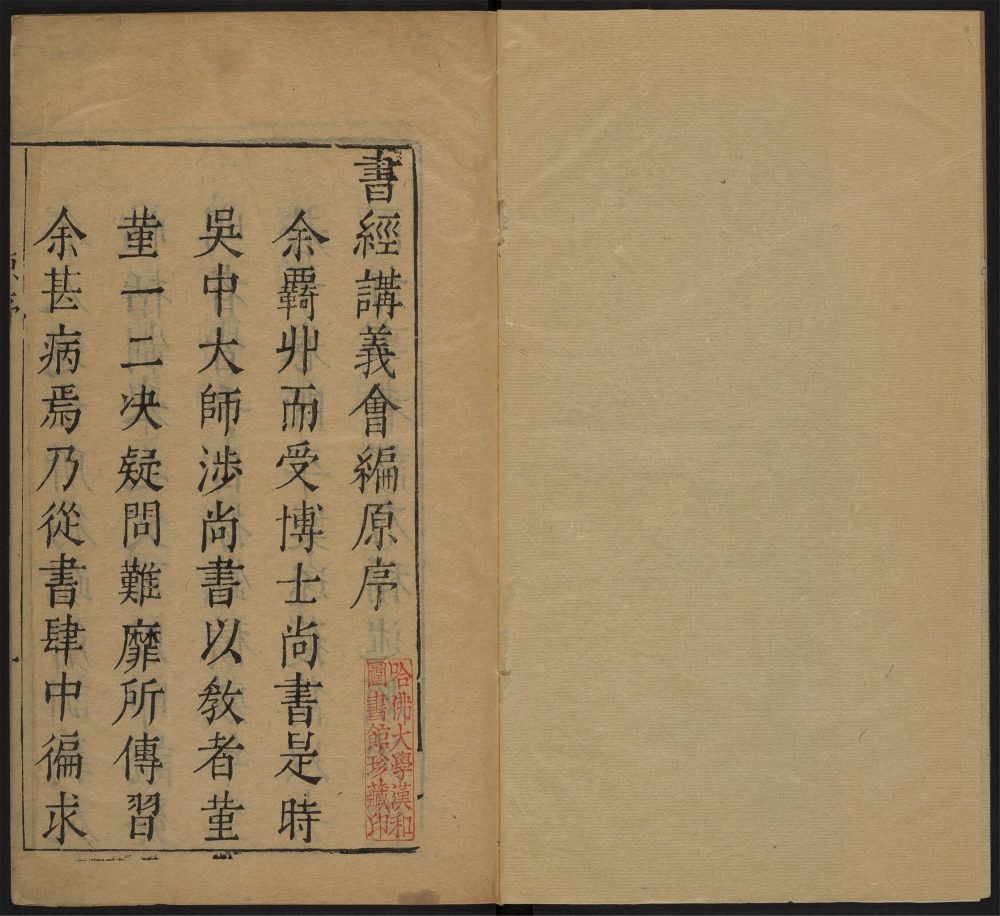 書經講義會編原序
余覊丱而受博士尚書是時
吳中大師涉尚書以敎者菫
菫一二决疑問難靡所傳習
余甚病焉乃從書肆中徧求
哈佛大學漢和
圖書館珍藏印